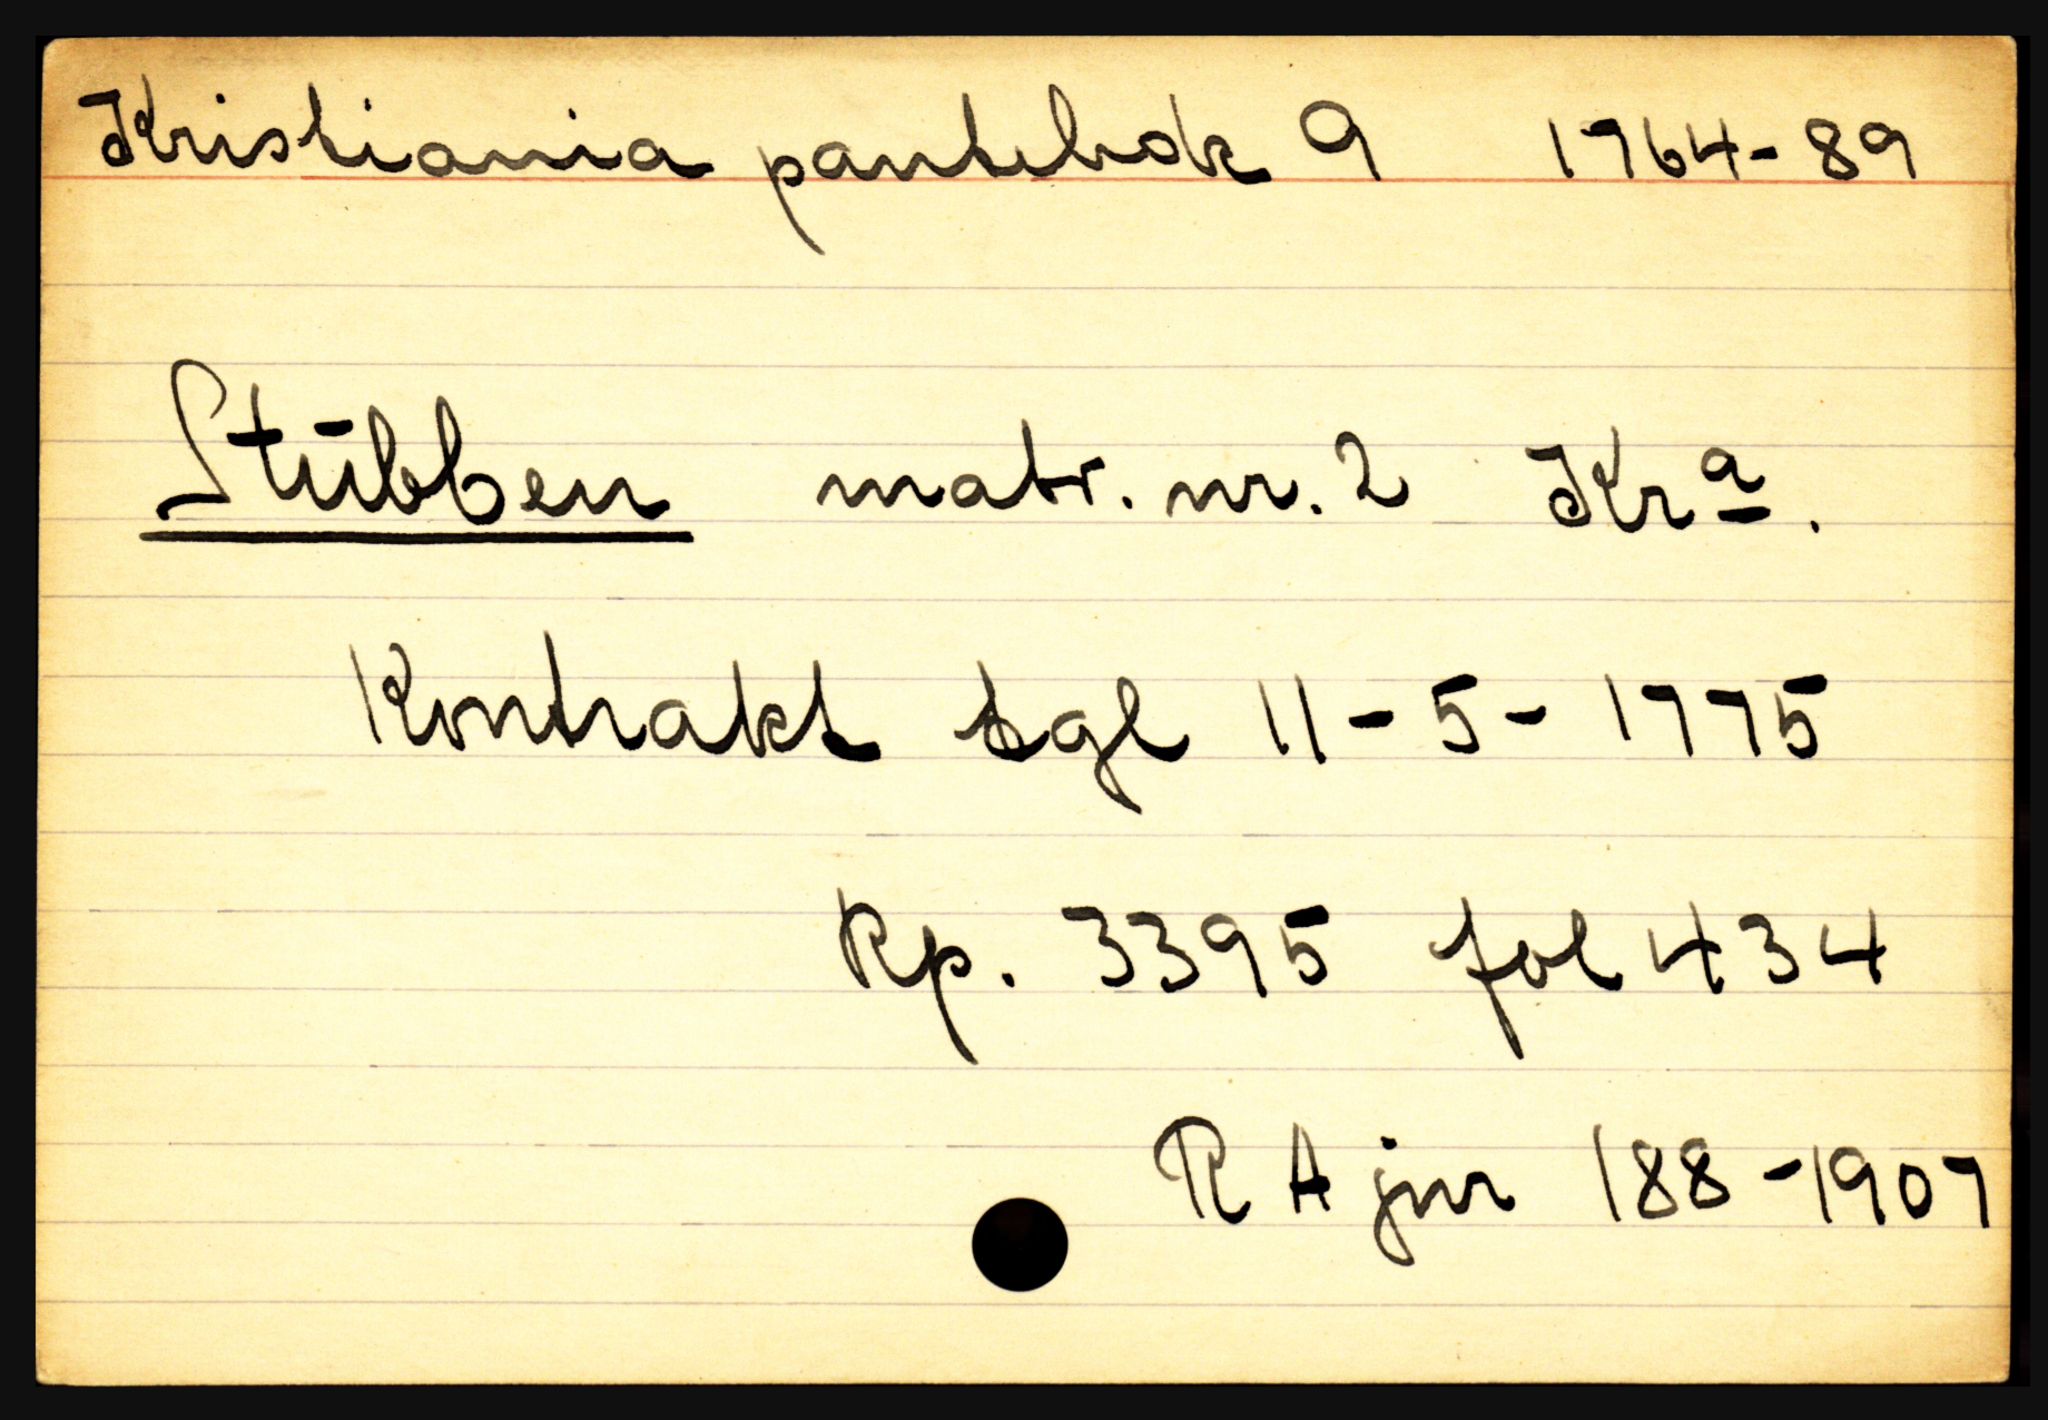 Kristiania pantebok 9 1764-89
Stübben matr. nr. 2 Kra.
Kontrakt tgl 11-5-1775
Rp. 3395 fol 434
RA jnr 188-1907